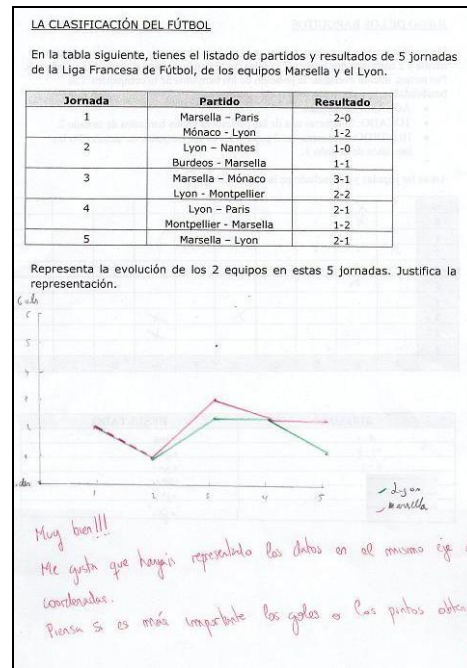 LA CLASIFICACIÓN DEL FÚTBOL
En la tabla siguiente, tienes el listado de partidos y resultados de 5 jornadas
de la Liga Francesa de Fútbol, de los equipos Marsella y el Lyon.
Jornada Partido Resultado
1 Marsella – Paris 2-0
Mónaco - Lyon 1-2
2 Lyon – Nantes 1-0
Burdeos - Marsella 1-1
3 Marsella – Mónaco 3-1
Lyon - Montpellier 2-2
4 Lyon – Paris 2-1
Montpellier - Marsella 1-2
5 Marsella – Lyon 2-1
Representa la evolución de los 2 equipos en estas 5 jornadas. Justifica la
representación.
5
1 2 3 4 5
Lyon
Marsella
Muy bien!!!
Me gusta que hayáis representado los datos en el mismo eje
coordenadas.
Piensa si es más importante los goles o los puntos